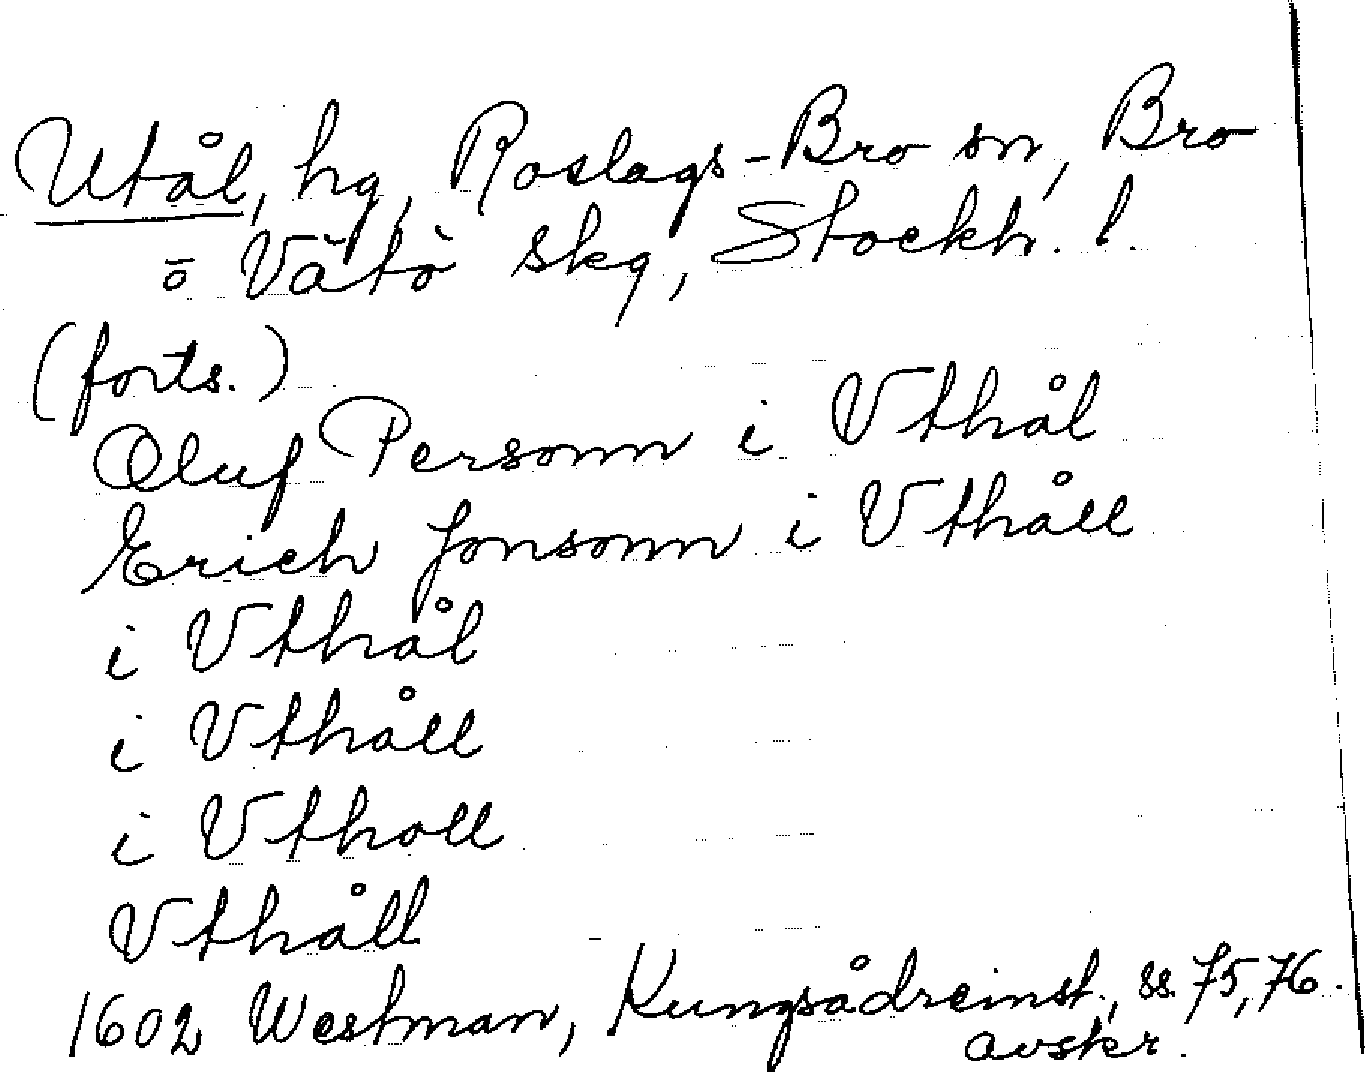 Utål, hg, Roslags-Bro sn, Bro
o Vätö skg, Stockh. l.
(forts.)
Oluf Personn i Vthål
Erich Jonsonn i Vthåll
i Vthål
i Vthåll
i Vtholl
Vthåll
1602 Westman, Kungsådreinst., ss. 75, 76.
avskr.